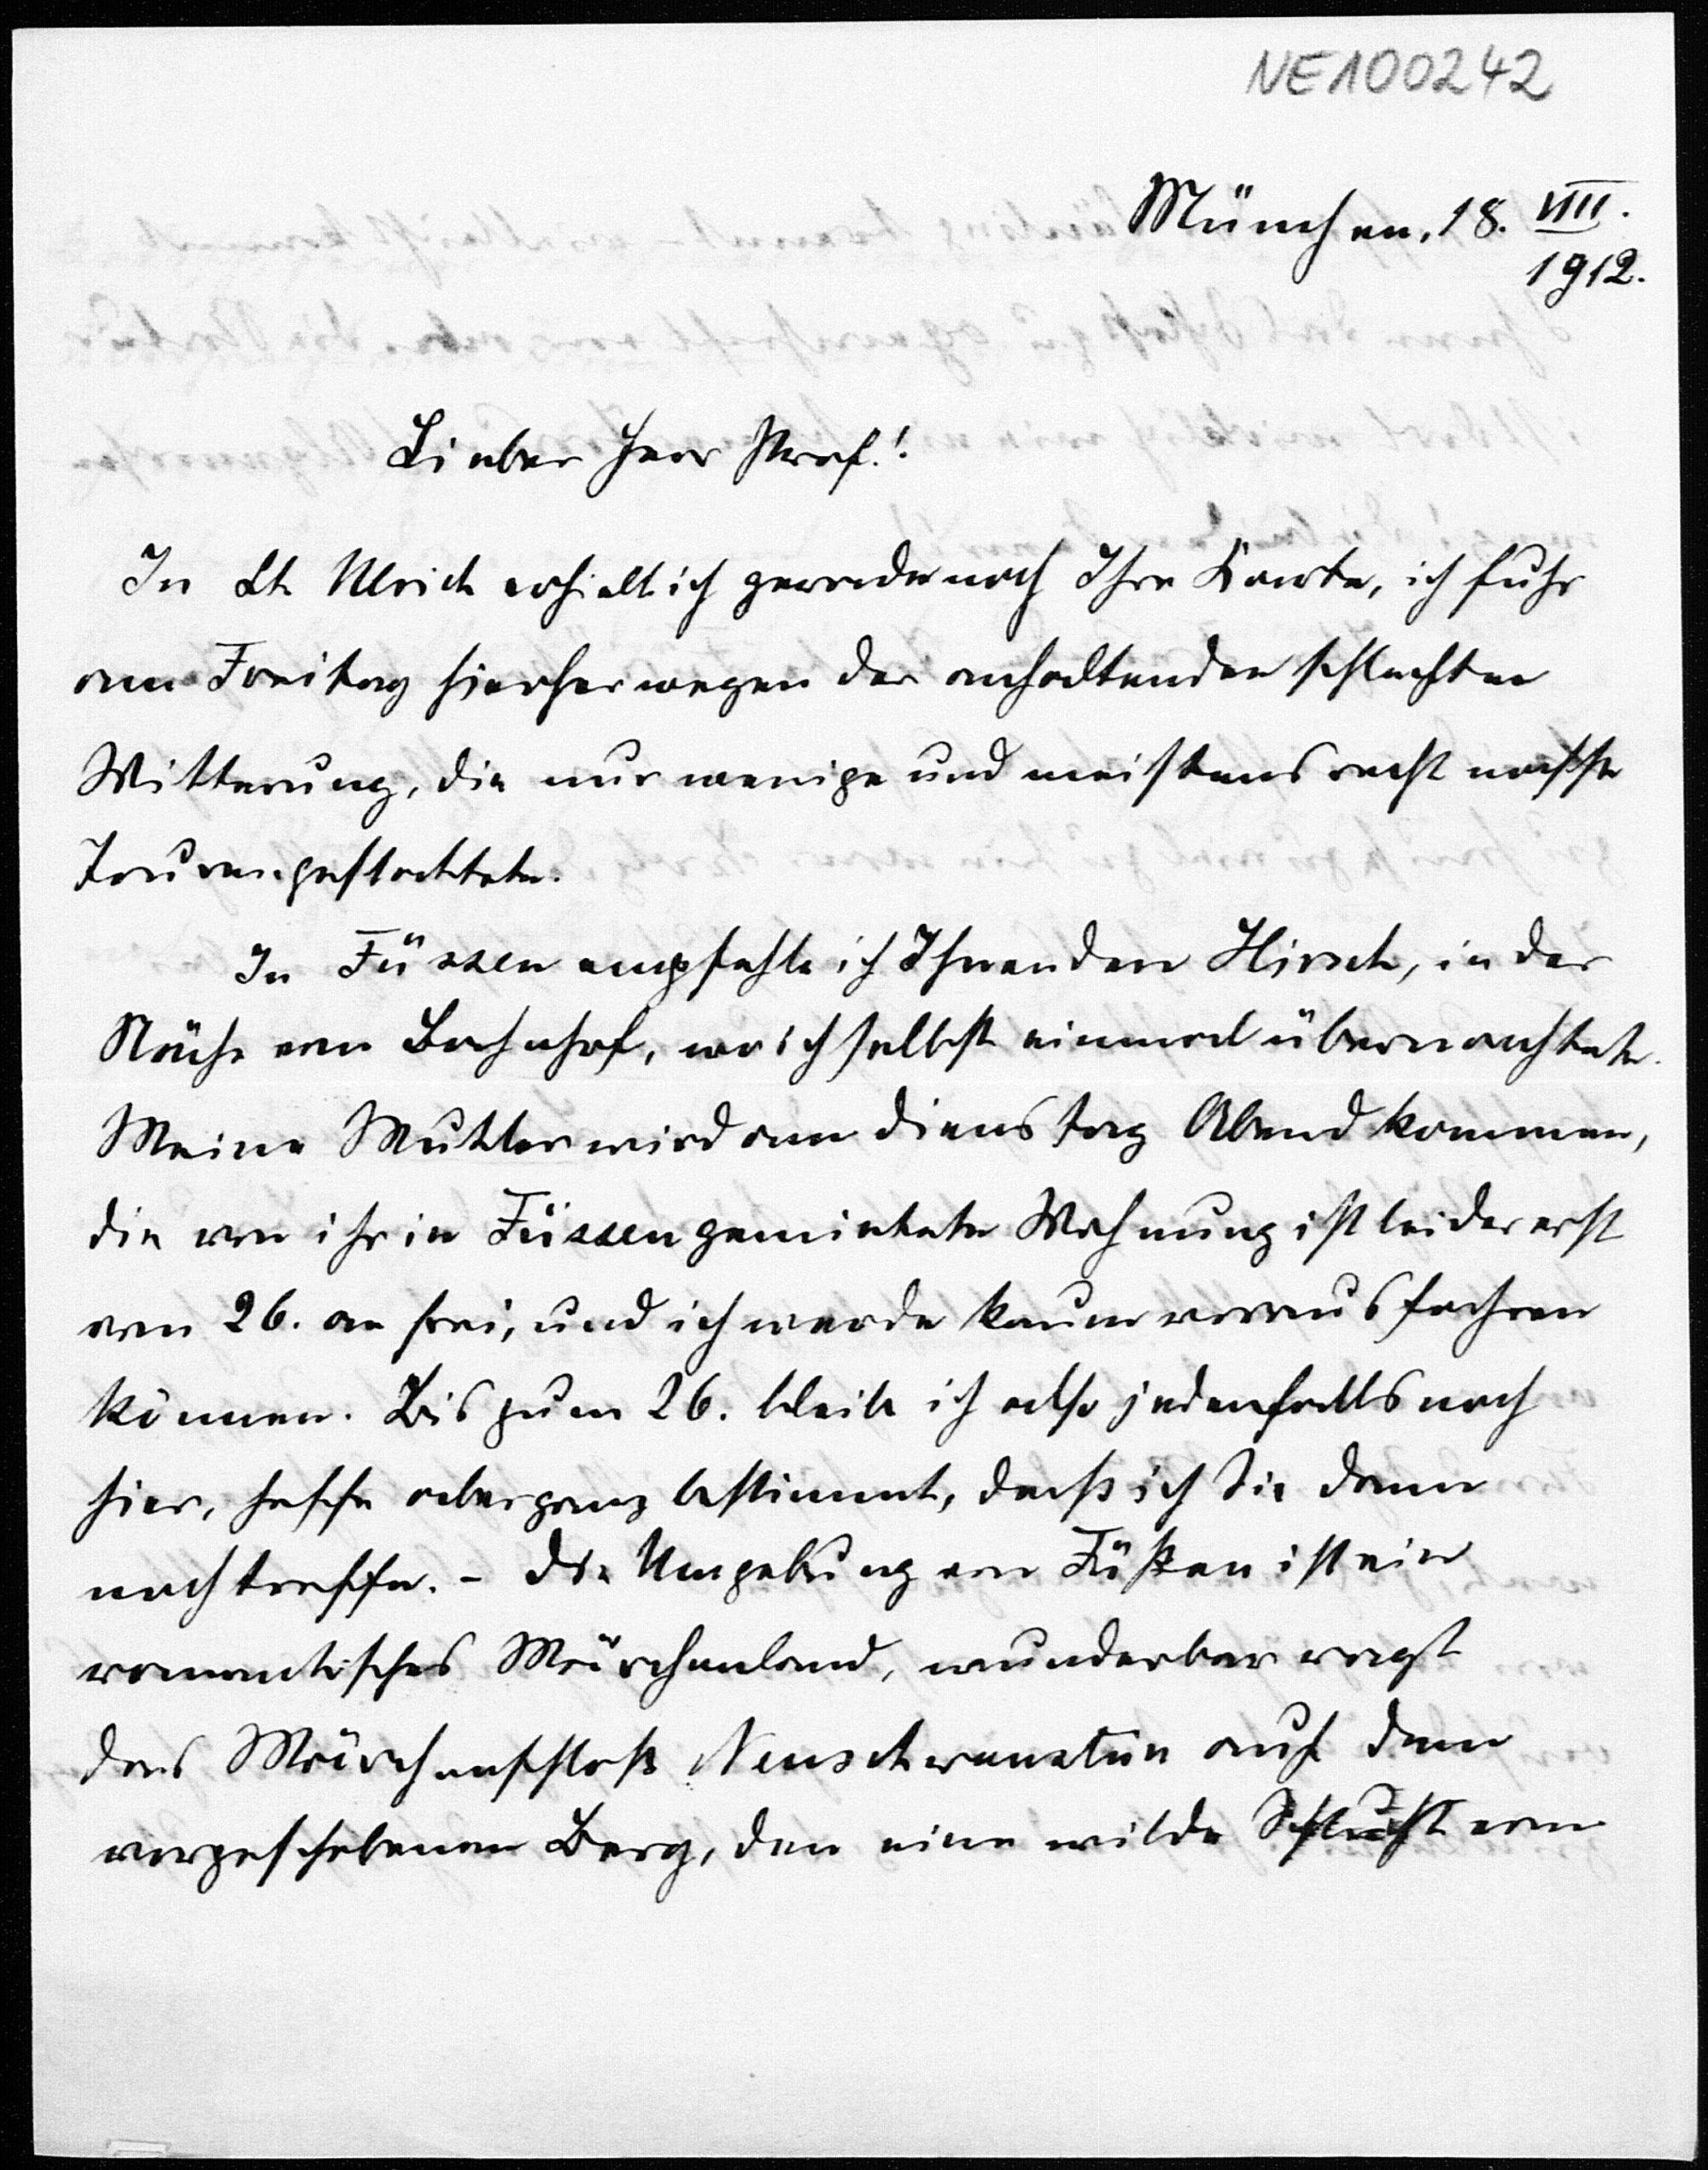 NE100242
München, 18. VIII.
1912.
Lieber Herr Prof.!
In St. Ulrich erhielt ich gerade noch Ihre Karte, ich fuhr
am Freitag hierher wegen der anhaltenden schlechten
Witterung, die nur wenige und meistens recht nasse
Touren gestattete.
In Füssen empfehle ich Ihnen den Hirsch, in der
Nähe vom Bahnhof, wo ich selbst einmal übernachtete.
Meine Mutter wird am Dienstag Abend kommen,
die von ihr in Füssen gemietete Wohnung ist leider erst
vom 26. an frei, und ich werde kaum vorausfahren
können. Bis zum 26. bleibe ich also jedenfalls noch
hier, hoffe aber ganz bestimmt, dass ich Sie dann
noch treffe. – Die Umgebung von Füssen ist ein
romantisches Märchenland, wunderbar ragt
das Märchenschloß Neuschwanstein auf dem
vorgeschobenen Berg, den eine wilde Schlucht vom